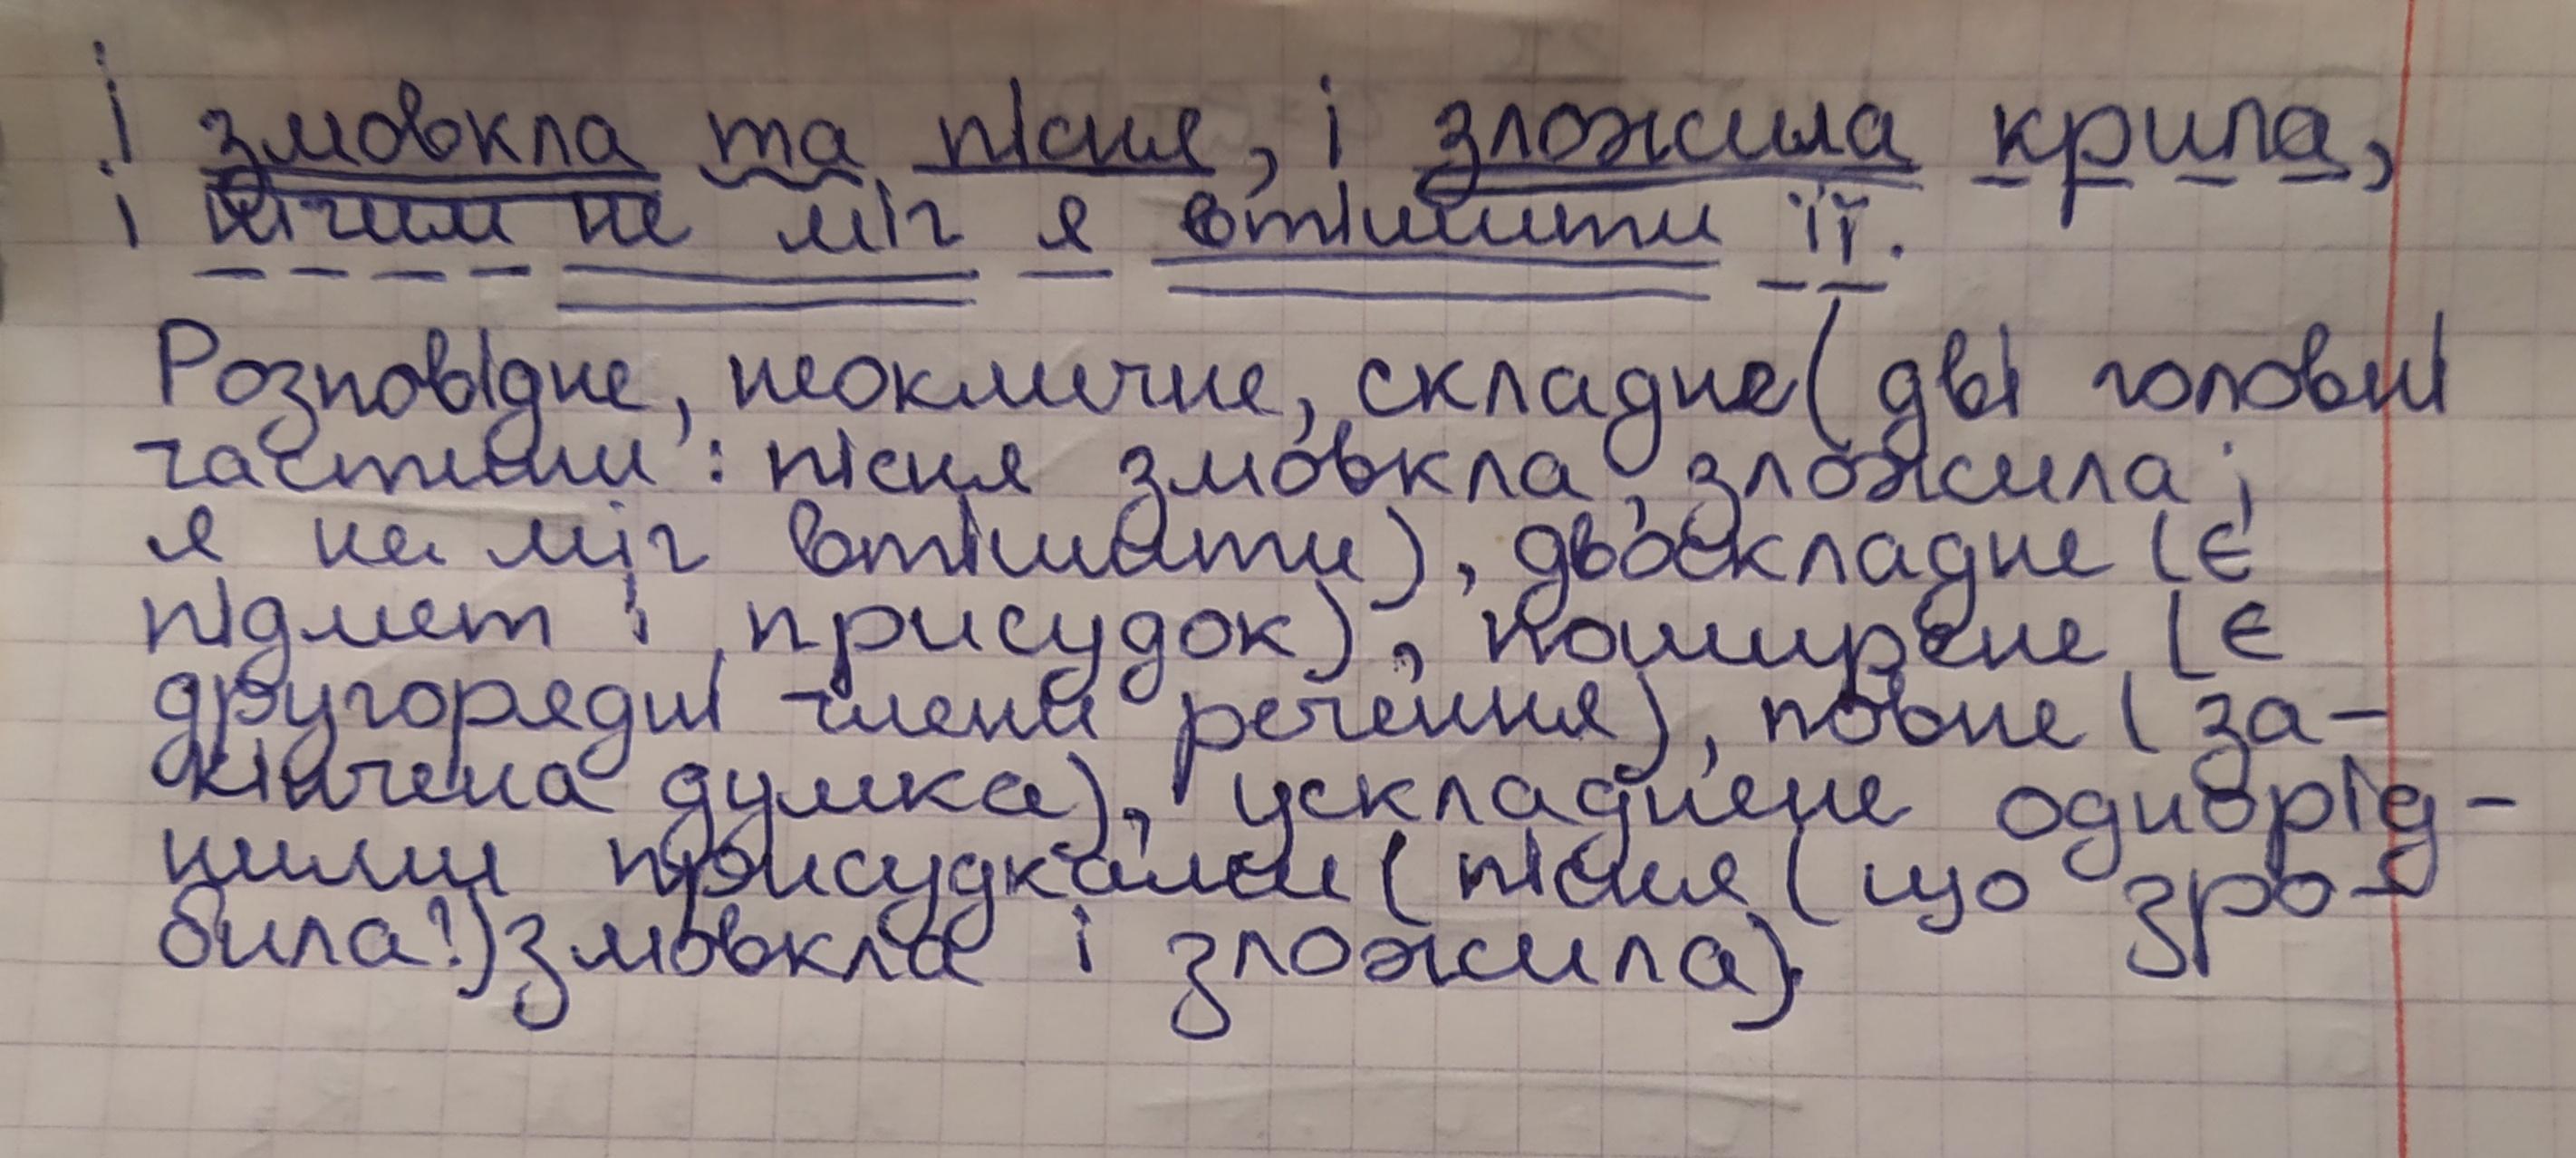 І змовкла та пісня, і зложила крила,
і нічим не міг я втішити її.
Розповідне, неокличне, складне (дві головні
частини: пісня змовкла, зложила;
я не міг втішити), двоскладне (є
підмет і присудок), поширене (є
другорядні члени речення), повне (за-
кінчена думка), ускладнене однорід-
ними присудками (пісня (що зро-
била?) змовкла і зложила).